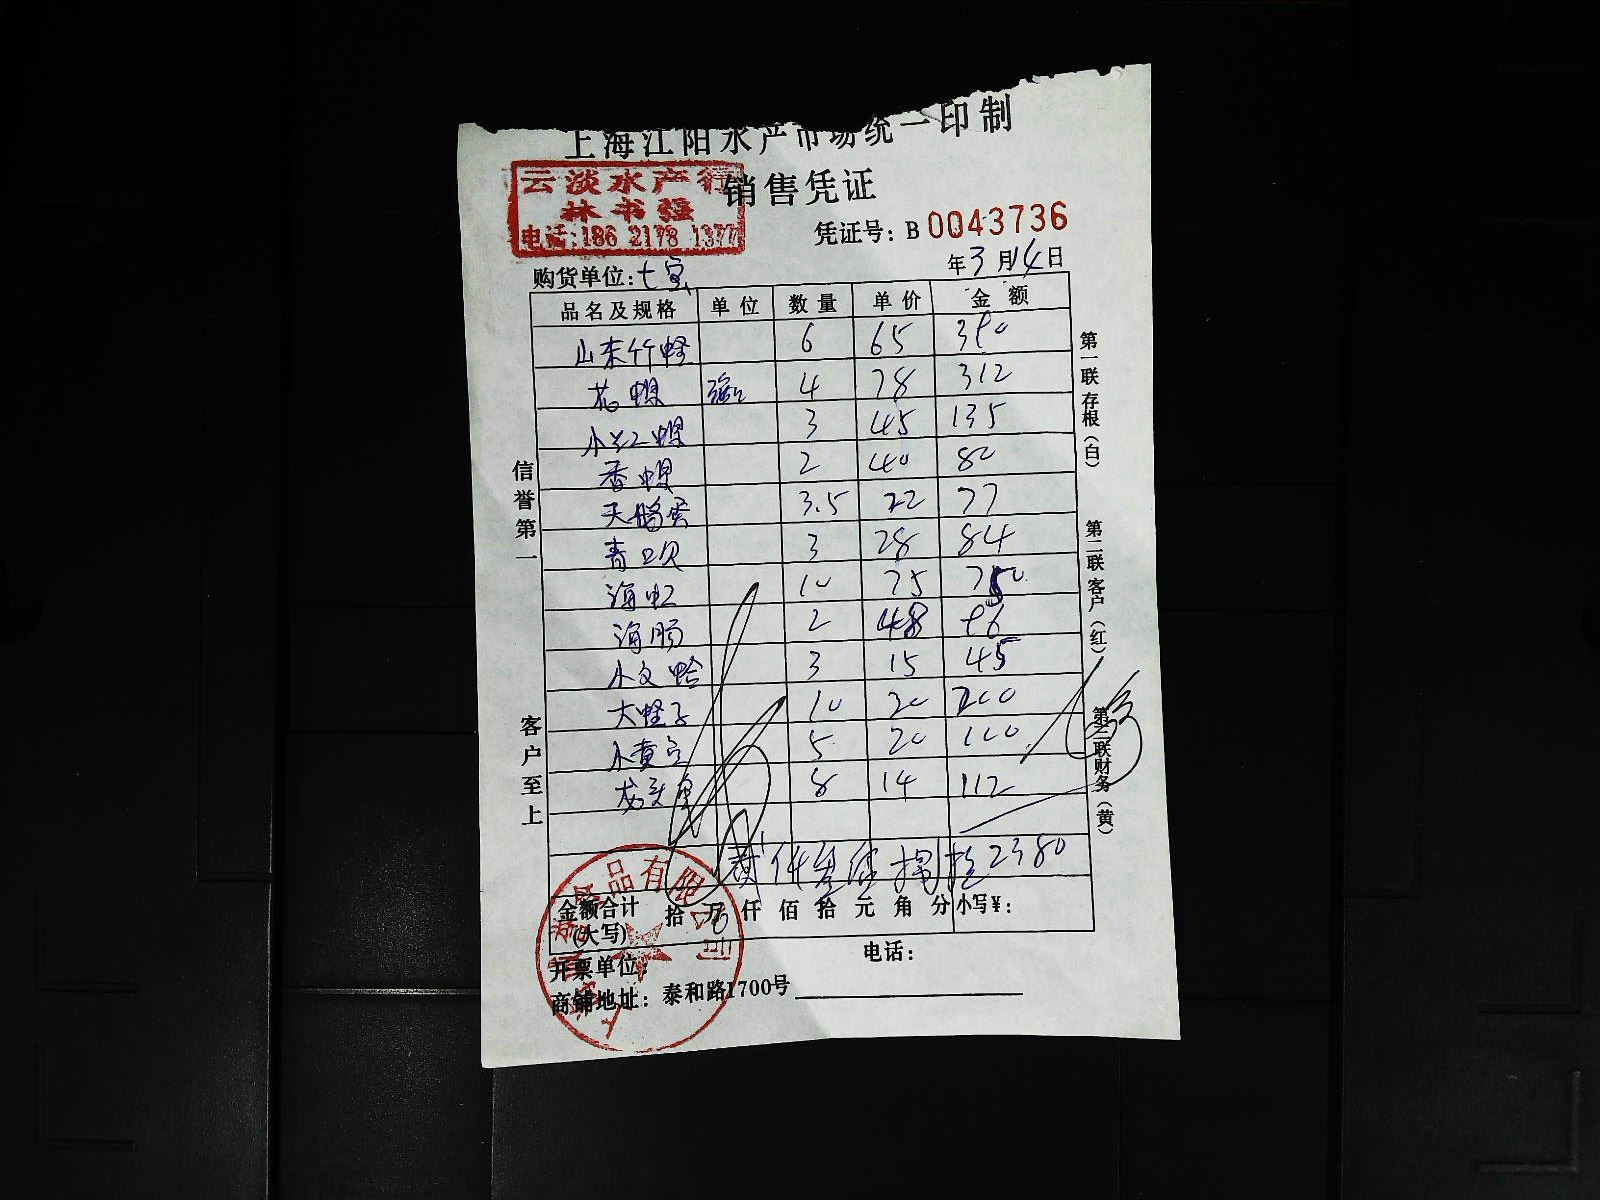 上海江阳水产市场统一印制
云淡水产行
林书强
电话:186 2178 1377
销售凭证
凭证号: B 0043736
购货单位: 七宝
年 3 月 14 日
品名及规格 单位 数量 单价 金额
山东竹蛏 6 65 390
花螺 4 78 312
小红螺 3 45 135
香螺 2 40 80
天鹅蛋 3.5 22 77
青口贝 3 28 84
海虹 10 75 750
海肠 2 48 96
小文蛤 3 15 45
大蛏子 10 20 200
小黄立 5 20 100
龙头鱼 8 14 112
2380
金额合计
(大写)
拾 万 仟 佰 拾 元 角 分 小写¥:
开票单位:
电话:
商铺地址: 泰和路1700号
信誉第一
客户至上
第一联 存根(白)
第二联 客户(红)
第三联 财务(黄)
品有限公司